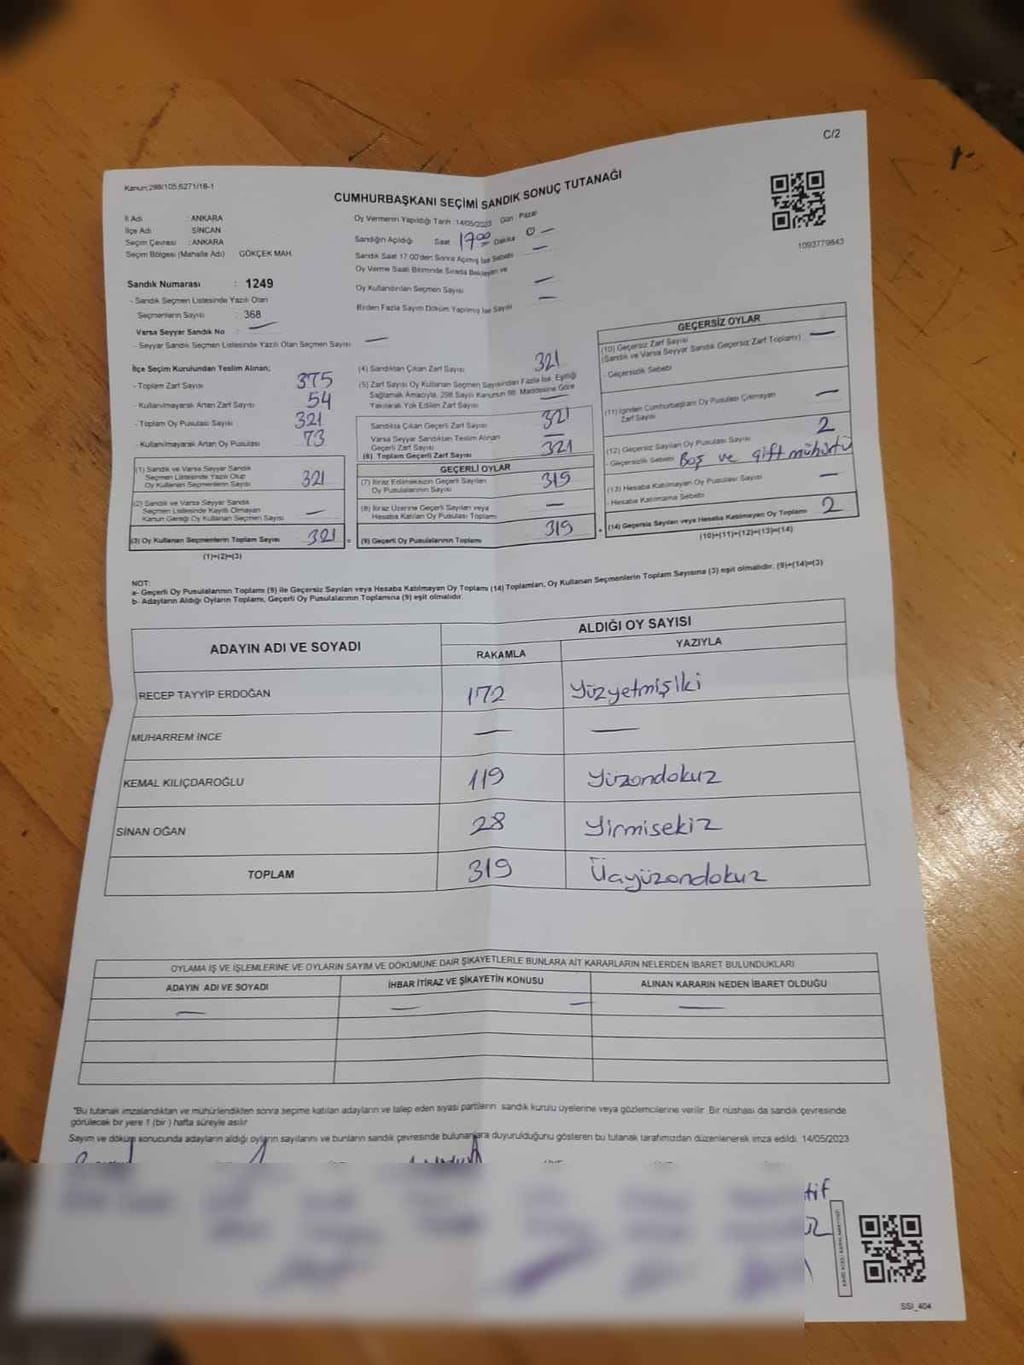 C/2
Kanun:298/105;6271/18-1
CUMHURBAŞKANI SEÇİMİ SANDIK SONUÇ TUTANAĞI
1093779843
İl Adı : ANKARA
İlçe Adı : SİNCAN
Seçim Çevresi : ANKARA
Seçim Bölgesi (Mahalle Adı) GÖKÇEK MAH.
Sandık Numarası : 1249
- Sandık Seçmen Listesinde Yazılı Olan
Seçmenlerin Sayısı : 368
Varsa Seyyar Sandık No —
- Seyyar Sandık Seçmen Listesinde Yazılı Olan Seçmen Sayısı —
Oy Vermenin Yapıldığı Tarih : 14/05/2023 Gün : Pazar
Sandığın Açıldığı Saat 17:00 Dakika 0 —
Sandık Saat 17:00'den Sonra Açılmış İse Sebebi —
Oy Verme Saati Bitiminde Sırada Bekleyen ve
Oy Kullandırılan Seçmen Sayısı —
Birden Fazla Sayım Döküm Yapılmış İse Sayısı —
İlçe Seçim Kurulundan Teslim Alınan;
- Toplam Zarf Sayısı 375
- Kullanılmayarak Artan Zarf Sayısı 54
- Toplam Oy Pusulası Sayısı 321
- Kullanılmayarak Artan Oy Pusulası 73
(1) Sandık ve Varsa Seyyar Sandık
Seçmen Listesinde Yazılı Olup
Oy Kullanan Seçmenlerin Sayısı 321
(2) Sandık ve Varsa Seyyar Sandık
Seçmen Listesinde Kayıtlı Olmayan
Kanun Gereği Oy Kullanan Seçmen Sayısı —
(3) Oy Kullanan Seçmenlerin Toplam Sayısı 321 =
(1)+(2)=(3)
(4) Sandıktan Çıkan Zarf Sayısı 321
(5) Zarf Sayısı Oy Kullanan Seçmen Sayısından Fazla İse, Eşitliği
Sağlamak Amacıyla, 298 Sayılı Kanunun 98. Maddesine Göre
Yakılarak Yok Edilen Zarf Sayısı —
Sandıkta Çıkan Geçerli Zarf Sayısı 321
Varsa Seyyar Sandıktan Teslim Alınan
Geçerli Zarf Sayısı —
(6) Toplam Geçerli Zarf Sayısı 321
GEÇERLİ OYLAR
(7) İtiraz Edilmeksizin Geçerli Sayılan
Oy Pusulalarının Sayısı 319
(8) İtiraz Üzerine Geçerli Sayılan veya
Hesaba Katılan Oy Pusulası Toplamı —
(9) Geçerli Oy Pusulalarının Toplamı 319 +
GEÇERSİZ OYLAR
(10) Geçersiz Zarf Sayısı
(Sandık ve Varsa Seyyar Sandık Geçersiz Zarf Toplamı) —
- Geçersizlik Sebebi
(11) İçinden Cumhurbaşkanı Oy Pusulası Çıkmayan
Zarf Sayısı —
(12) Geçersiz Sayılan Oy Pusulası Sayısı 2
- Geçersizlik Sebebi Boş ve çift mühürlü
(13) Hesaba Katılmayan Oy Pusulası Sayısı —
- Hesaba Katılmama Sebebi
(14) Geçersiz Sayılan veya Hesaba Katılmayan Oy Toplamı 2
(10)+(11)+(12)+(13)=(14)
NOT:
a- Geçerli Oy Pusulalarının Toplamı (9) ile Geçersiz Sayılan veya Hesaba Katılmayan Oy Toplamı (14) Toplamları, Oy Kullanan Seçmenlerin Toplam Sayısına (3) eşit olmalıdır. (9)+(14)=(3)
b- Adayların Aldığı Oyların Toplamı, Geçerli Oy Pusulalarının Toplamına (9) eşit olmalıdır.
ADAYIN ADI VE SOYADI ALDIĞI OY SAYISI
RAKAMLA YAZIYLA
RECEP TAYYİP ERDOĞAN 172 Yüzyetmişiki
MUHARREM İNCE — —
KEMAL KILIÇDAROĞLU 119 Yüzondokuz
SİNAN OĞAN 28 Yirmisekiz
TOPLAM 319 Üçyüzondokuz
OYLAMA İŞ VE İŞLEMLERİNE VE OYLARIN SAYIM VE DÖKÜMÜNE DAİR ŞİKAYETLERLE BUNLARA AİT KARARLARIN NELERDEN İBARET BULUNDUKLARI
ADAYIN ADI VE SOYADI İHBAR İTİRAZ VE ŞİKAYETİN KONUSU ALINAN KARARIN NEDEN İBARET OLDUĞU
— — — —
*Bu tutanak imzalandıktan ve mühürlendikten sonra seçime katılan adayların ve talep eden siyasi partilerin sandık kurulu üyelerine veya gözlemcilerine verilir. Bir nüshası da sandık çevresinde
görülecek bir yere 1 (bir) hafta süreyle asılır
Sayım ve döküm sonucunda adayların aldığı oyların sayılarını ve bunların sandık çevresinde bulunanlara duyurulduğunu gösteren bu tutanak tarafımızdan düzenlenerek imza edildi. 14/05/2023
SSI_404